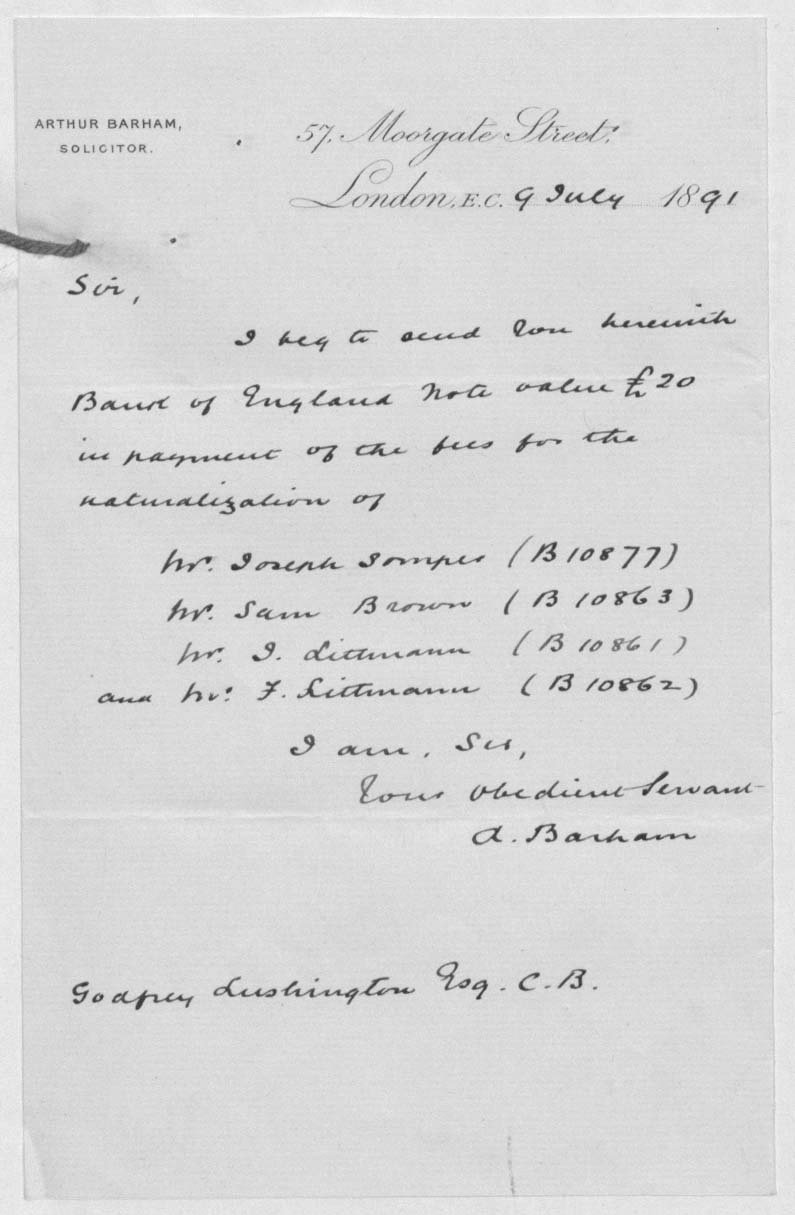 ARTHUR BARHAM,
SOLICITOR.
57, Moorgate Street,
London, E.C. 9 July 1891
Sir,
I beg to send you herewith
Bank of England Note value £20
in payment of the fees for the
naturalization of
Mr. Joseph (B 10877)
Mr. Sam Brown (B 10863)
Mr. I. Littmann (B 10861)
and Mr. F. Littmann (B 10862)
I am, Sir,
Your Obedient Servant
A. Barham
Godfrey Lushington Esq. C.B.